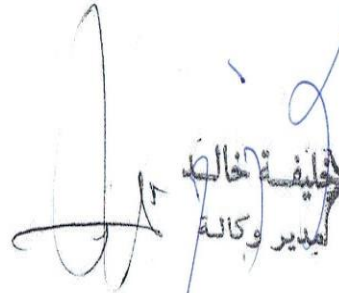 خليفة خالد
مدير وكالة